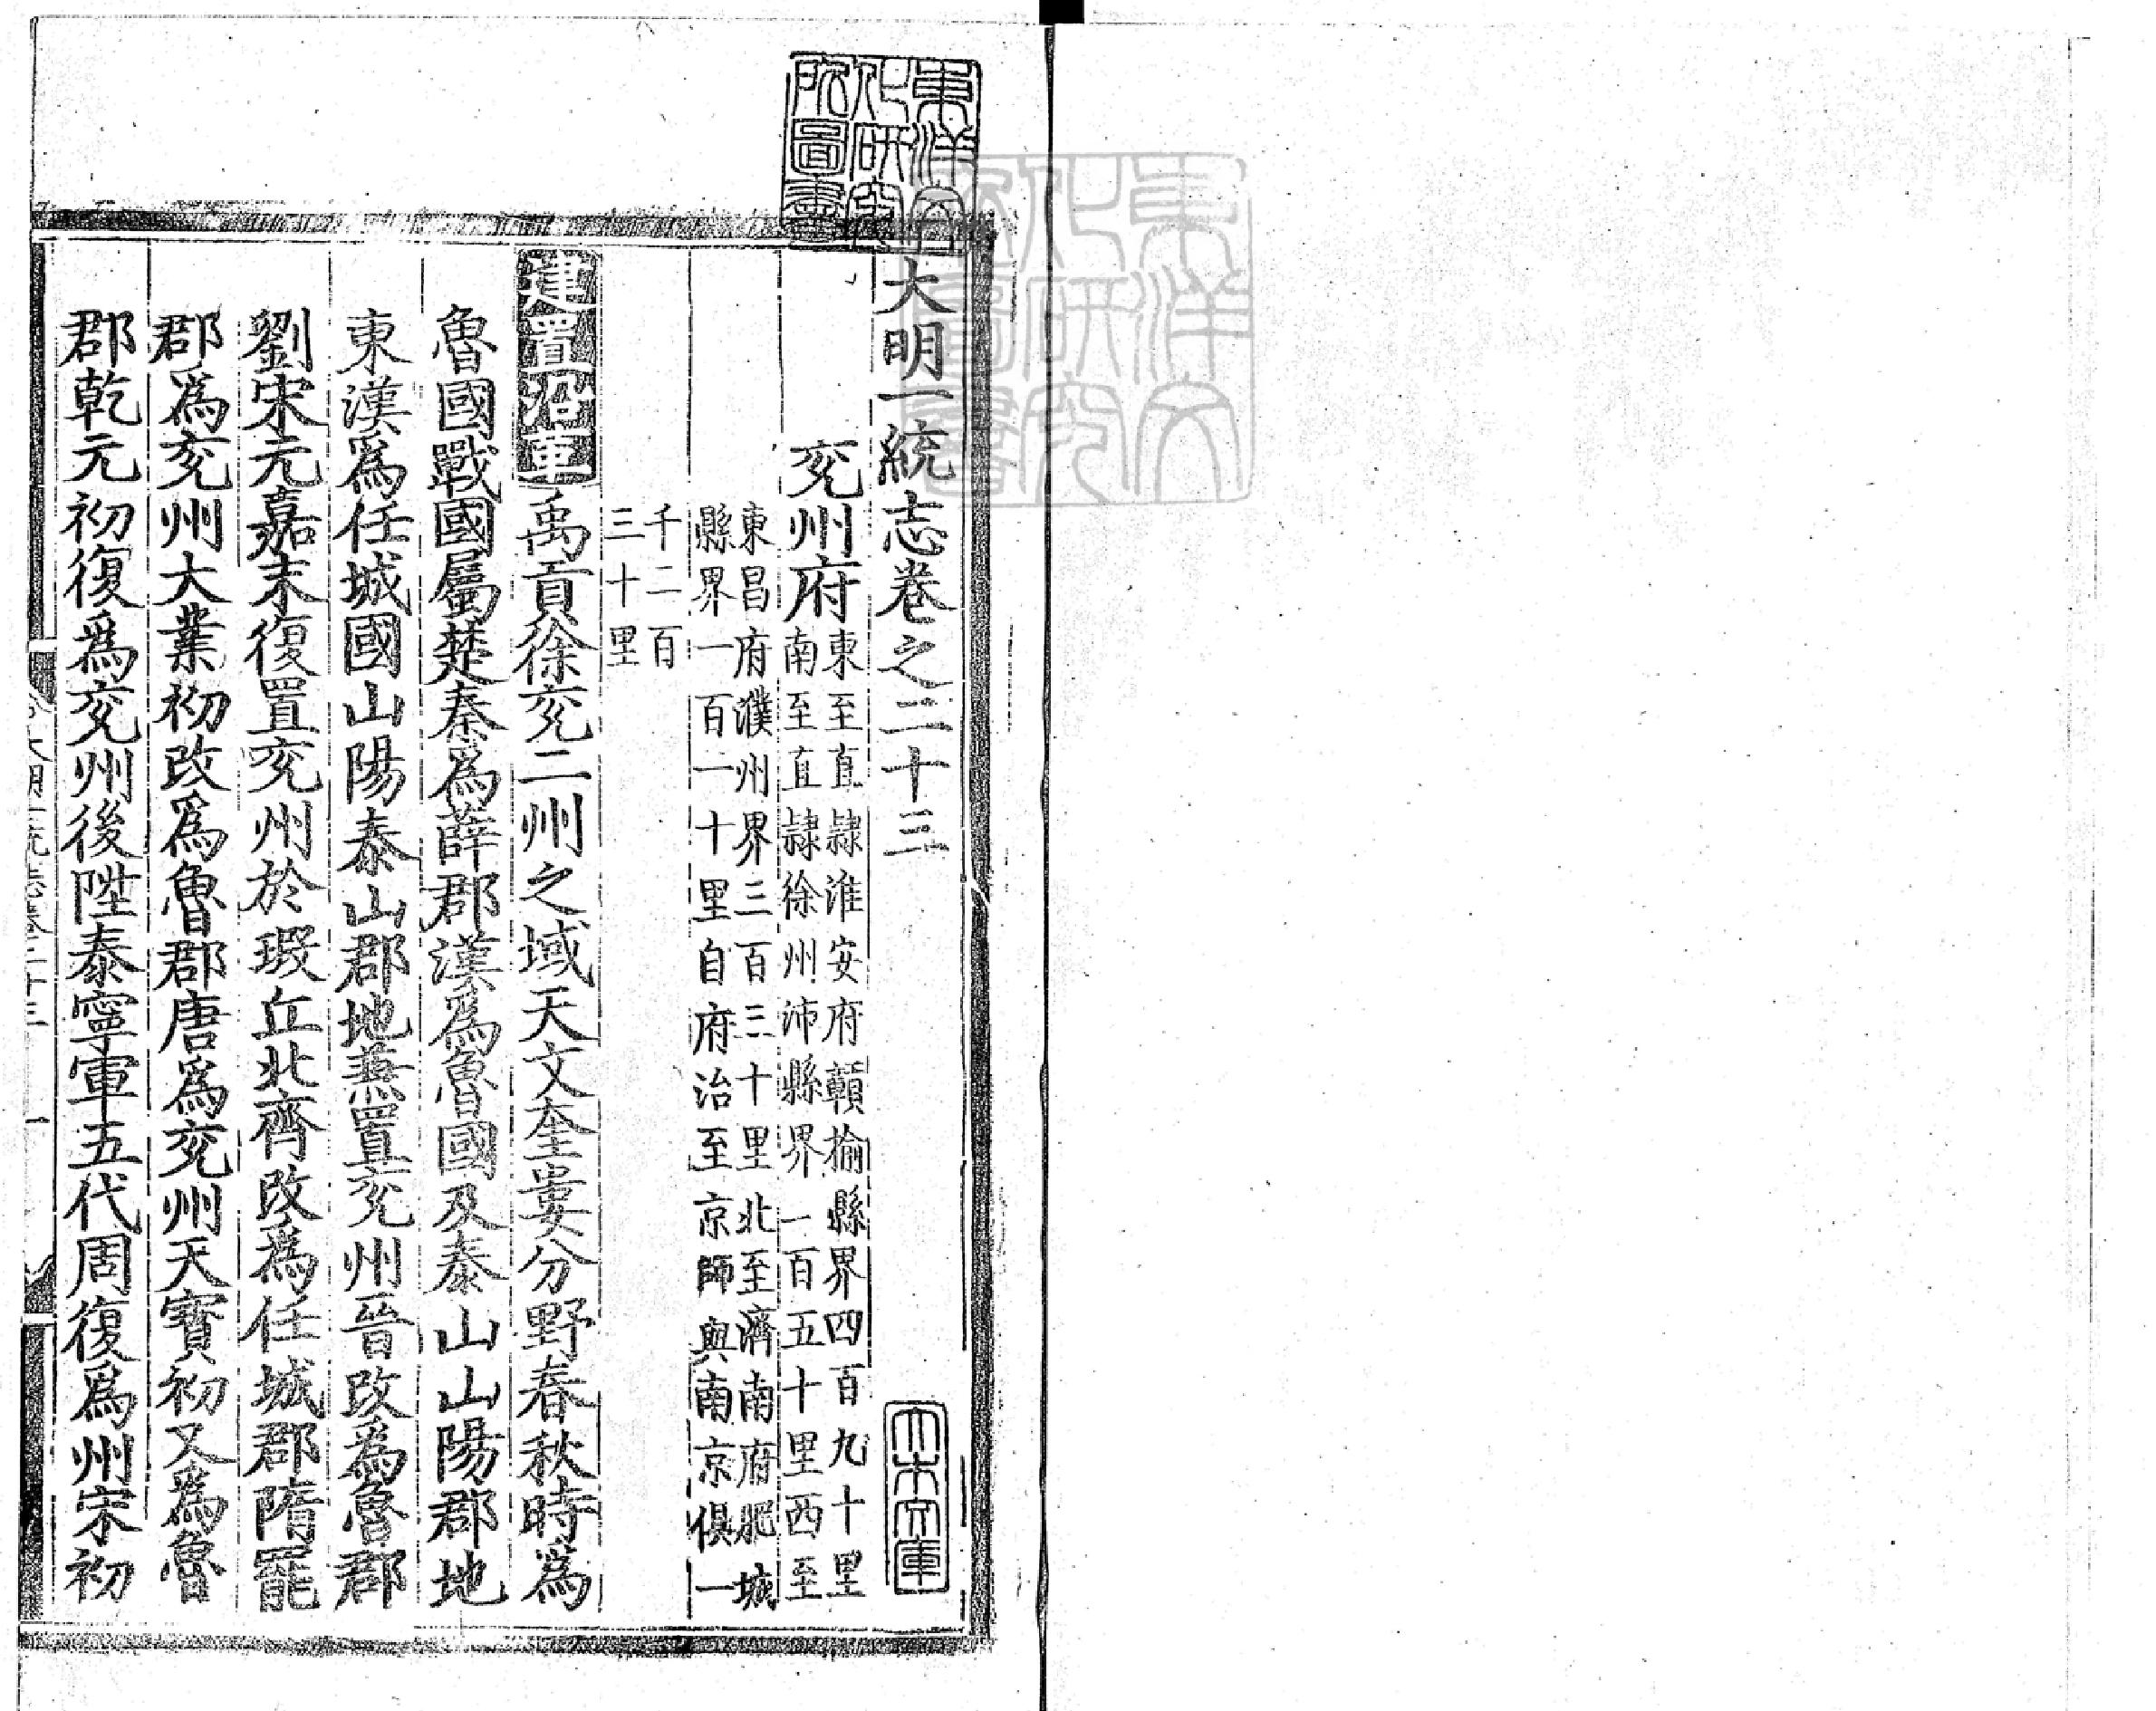 大明一統志卷之二十三
兖州府東至直隷淮安府贛榆縣界四百九十里
南至直隷徐州沛縣界一百五十里西至
東昌府濮州界三百三十里北至濟南府肥城
縣界一百一十里自府治至京師與南京俱一
千二百
三十里
建置沿革禹貢徐兖二州之域天文奎婁分野春秋時爲
魯國戰國屬楚秦爲薛郡漢爲魯國及泰山山陽郡地
東漢爲任城國山陽泰山郡地兼置兖州晉改爲魯郡
劉宋元嘉末復置兖州於瑕丘北齊改爲任城郡隋罷
郡爲兖州大業初改爲魯郡唐爲兖州天寳初又爲魯
郡乾元初復爲兖州後陞泰寧軍五代周復爲州宋初
大明一統志卷二十三
一
東洋文化研究所圖書
大木文庫
東洋文化研究所圖書